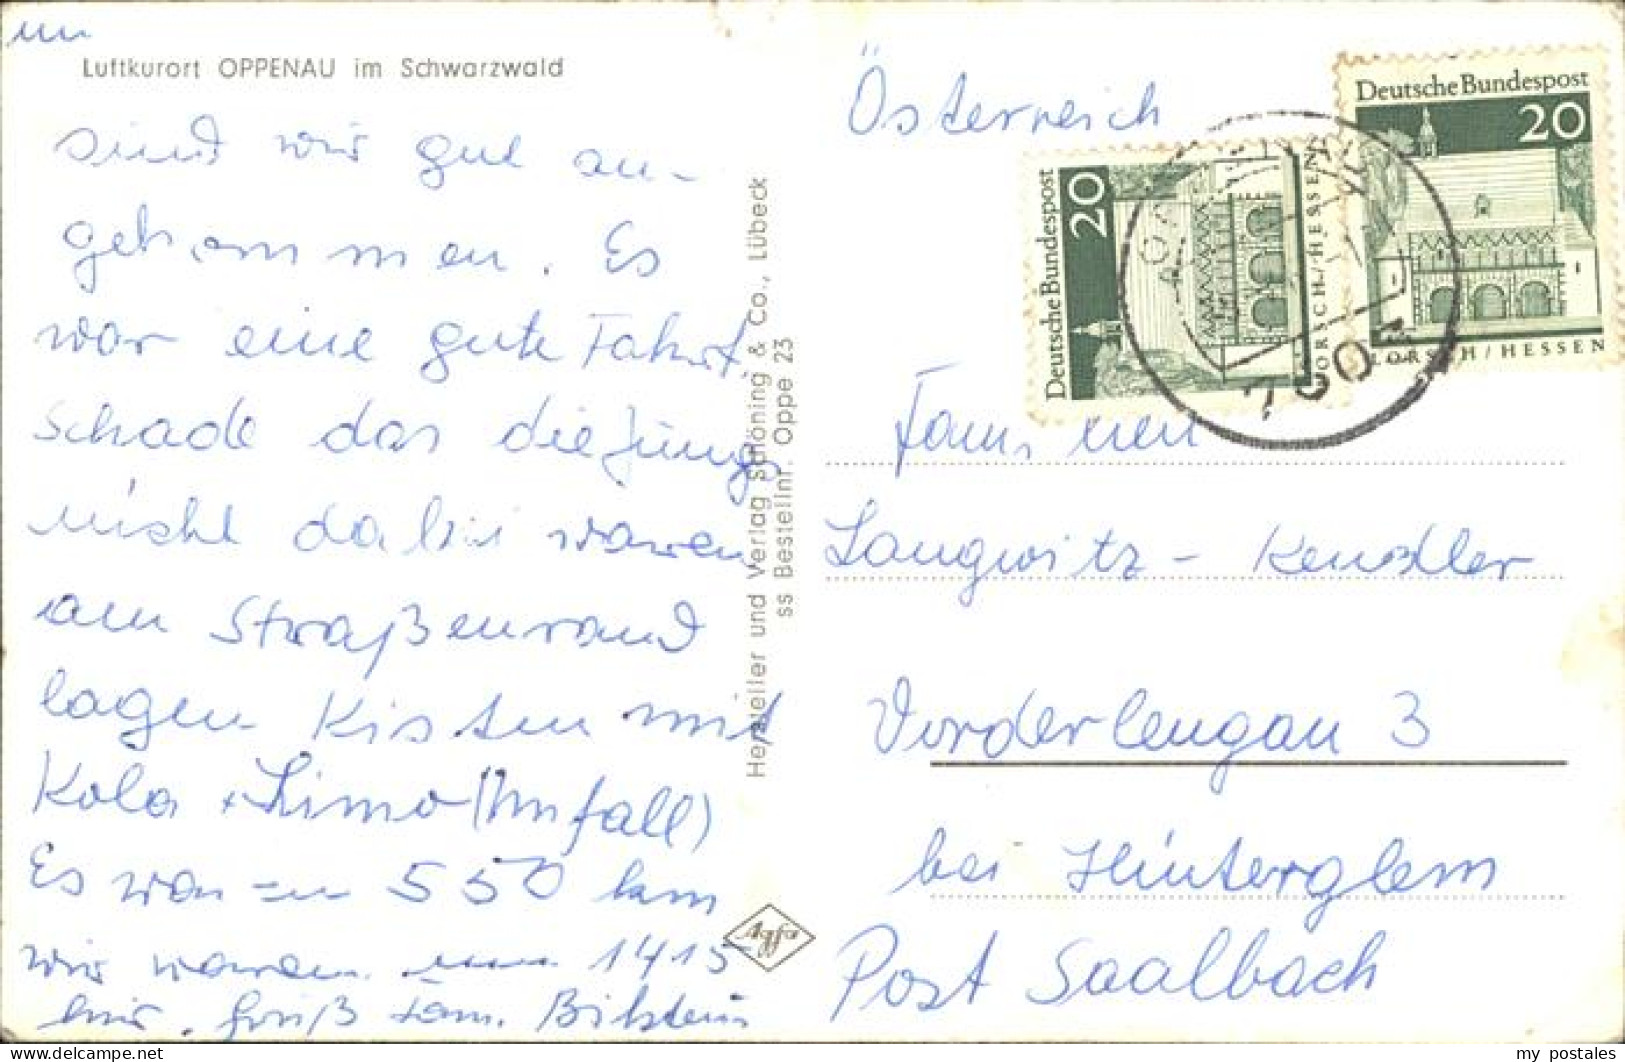 Luftkurort OPPENAU im Schwarzwald
sind wir gut an-
gekommen. Es
war eine gute Fahrt,
schade das die Jungs
nicht dabei waren
am Straßenrand
lagen Kisten mit
Kola + Limo (Unfall)
Es waren 550 km
wir waren um 1415
hier. Gruß Fam. Bilstein
Hersteller und Verlag Schöning & Co., Lübeck
ss Bestellnr. Oppe 23
Agfa
Österreich
Deutsche Bundespost
20
LORSCH/HESSEN
Deutsche Bundespost
20
LORSCH/HESSEN
Familien
Langwitz - Kendler
Vorderlengau 3
bei Hinterglem
Post Saalbach
my postales